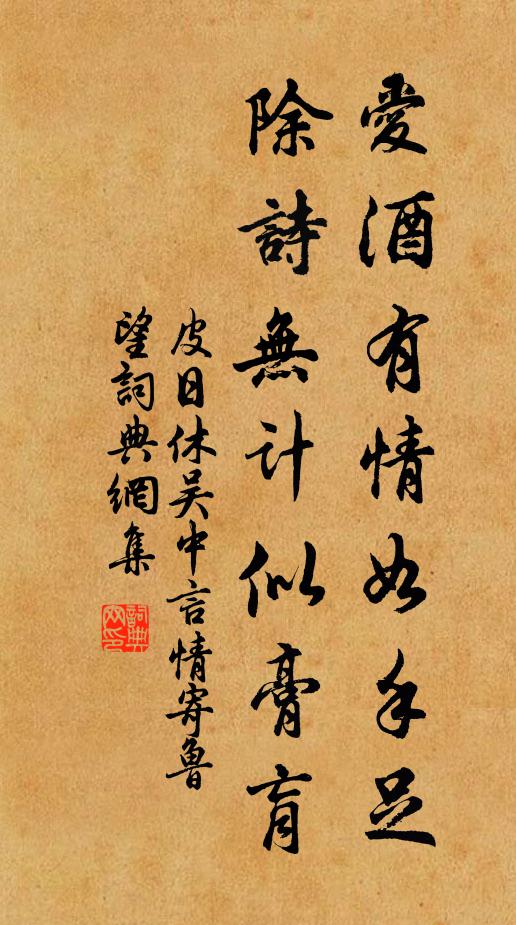 愛酒有情如手足
除詩無計似膏肓
皮日休吳中言情寄魯
望詞典網集
詞典
网印